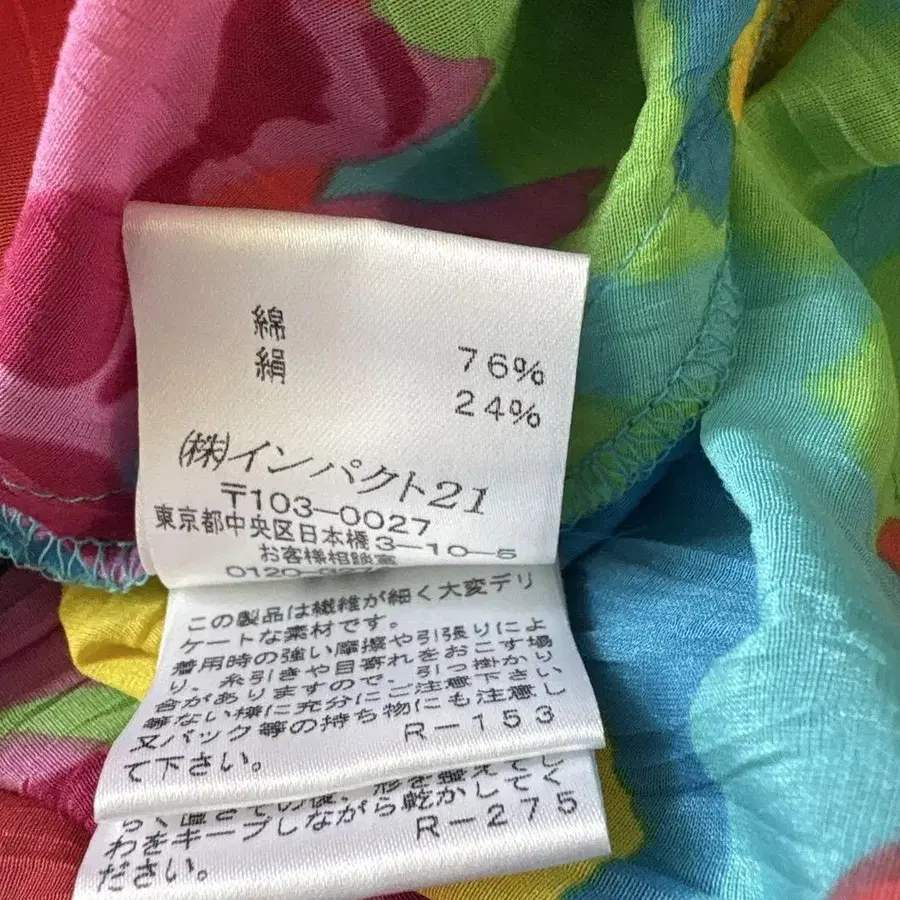 綿 76%
絹 24%
㈱インパクト21
〒103-0027
東京都中央区日本橋3-10-5
お客様相談室
0120-
この製品は繊維が細く大変デリ
ケートな素材です。
着用時の強い摩擦や引張りによ
り、糸引きや目寄れをおこす場
合がありますので、引っ掛かり
等ない様に充分にご注意下さい。
又バック等の持ち物にも注意し
て下さい。 R-153
わをキープしながら乾かしてく
ださい。 R-275